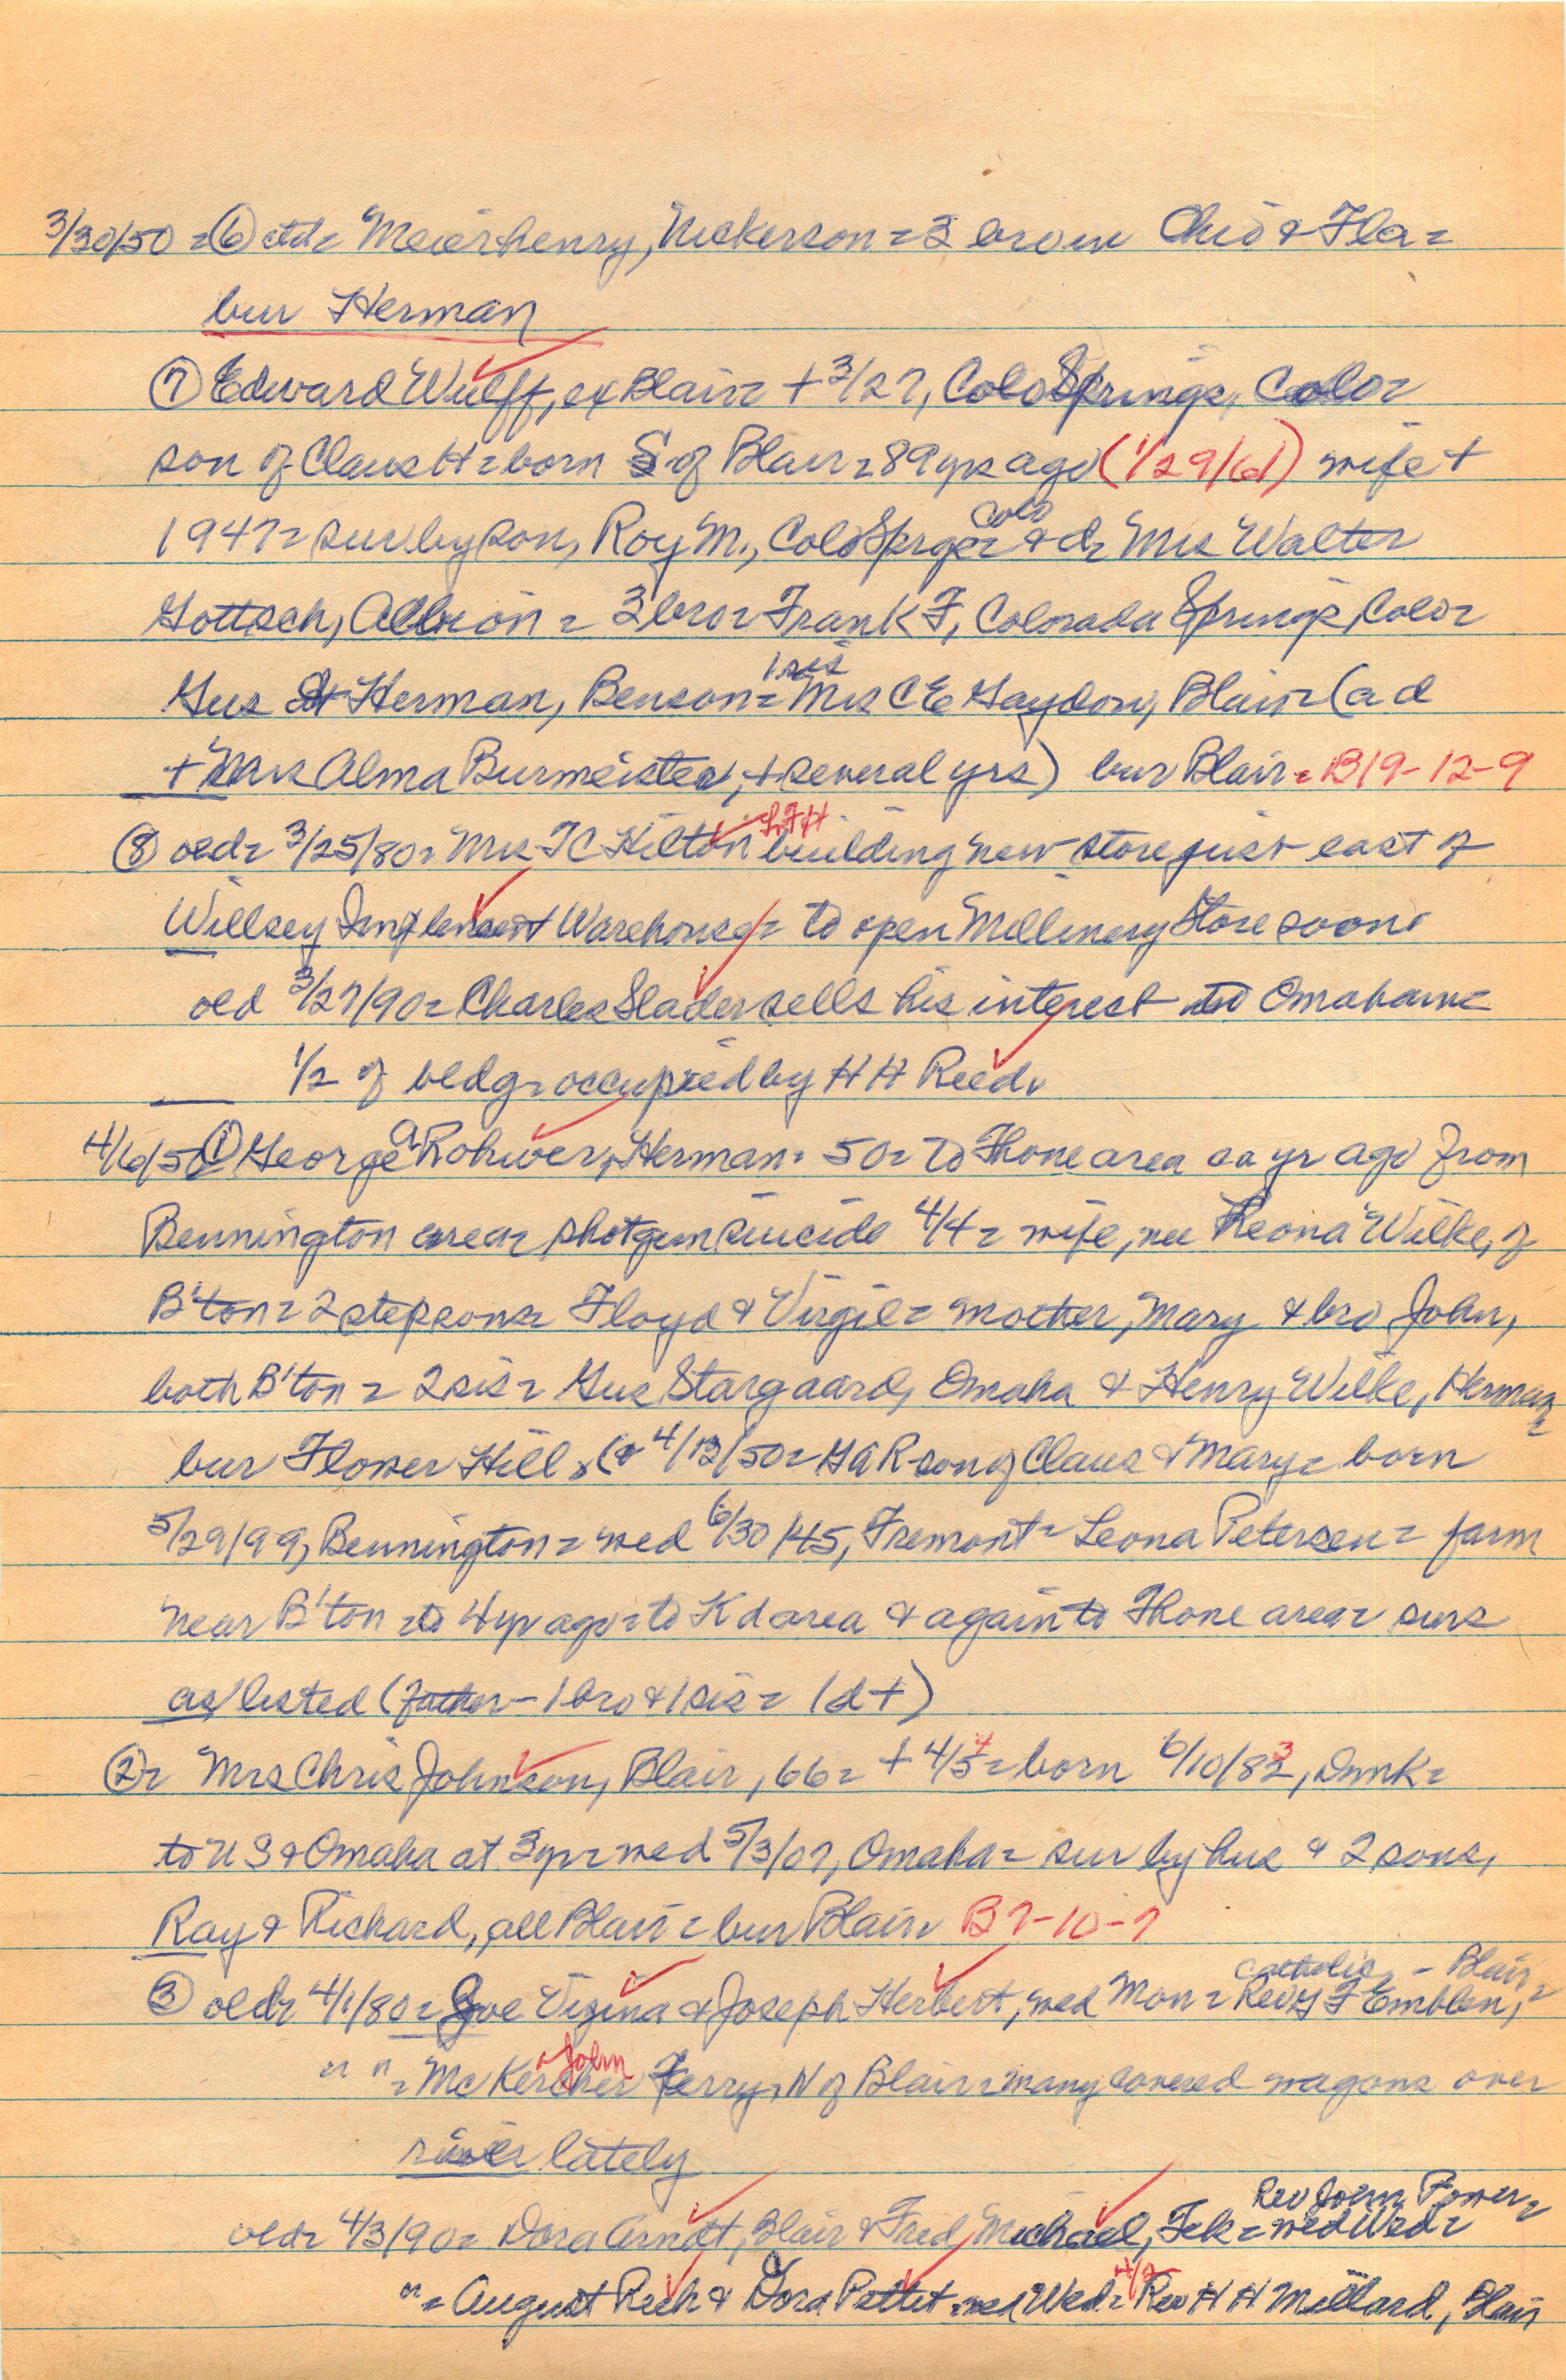 3/30/50 = ⑥ ctd = Meierhenry, Nickerson = 3 bro in Ohio & Fla =
bur Herman
⑦ Edward Wulff, ex Blair = + 3/27, Colo Springs, Colo =
son of Claus H = born S of Blair = 89 yrs ago (1/29/61) wife +
1947 = sur by son, Roy M., Colo Sprgs = Colo & d = Mrs Walter
Gottsch, Albion = 3 bro = Frank F, Colorado Springs, Colo =
Gus & Herman, Benson = 1 sis = Mrs C E Gaydon, Blair = (a d
+ Mrs Alma Burmeister, + several yrs) bur Blair = B19-12-9
⑧ old = 3/25/80 = Mrs T C Hilton LFH building new store just east of
Willsey Implement Warehouse = to open Millinery Store soon =
old 3/27/90 = Charles Slader sells his interest to Omahan =
1/2 of bldg = occupied by H H Reed.
4/6/50 ① George A Rohwer, Herman = 50 = to Thone area ca yr ago from
Bennington area = shotgun suicide 4/4 = wife, nee Leona Wilke, of
B'ton = 2 stepsons = Floyd & Virgil = mother, Mary & bro John,
both B'ton = 2 sis = Gus Stargaard, Omaha & Henry Wilke, Herman =
bur Flower Hills (& 4/13/50 = G A R son of Claus & Mary = born
5/29/99, Bennington = wed 6/30/45, Fremont = Leona Petersen = farm
near B'ton = to 4 yr ago = to Kd area & again to Thone area = surs
as listed (father - 1 bro & 1 sis = 1 d +)
② = Mrs Chris Johnson, Blair, 66 = + 4/5 4 = born 6/10/82 3, Dnmk =
to U S & Omaha at 3 yr = wed 5/3/07, Omaha = sur by hus & 2 sons,
Ray & Richard, all Blair = bur Blair. B7-10-7
③ old = 4/1/80 = Zoe Vizina & Joseph Herbert, wed Mon = Catholic Rev G F Emblen, - Blair =
" " = McKercher John Ferry, N of Blair = many covered wagons over
river lately
old = 4/3/90 = Dora Arndt, Blair & Fred Michael, Tek = wed Wed = Rev John Power =
" = August Rech & Dora Pettet = wed Wed = 4/2 Rev H H Millard, Blair